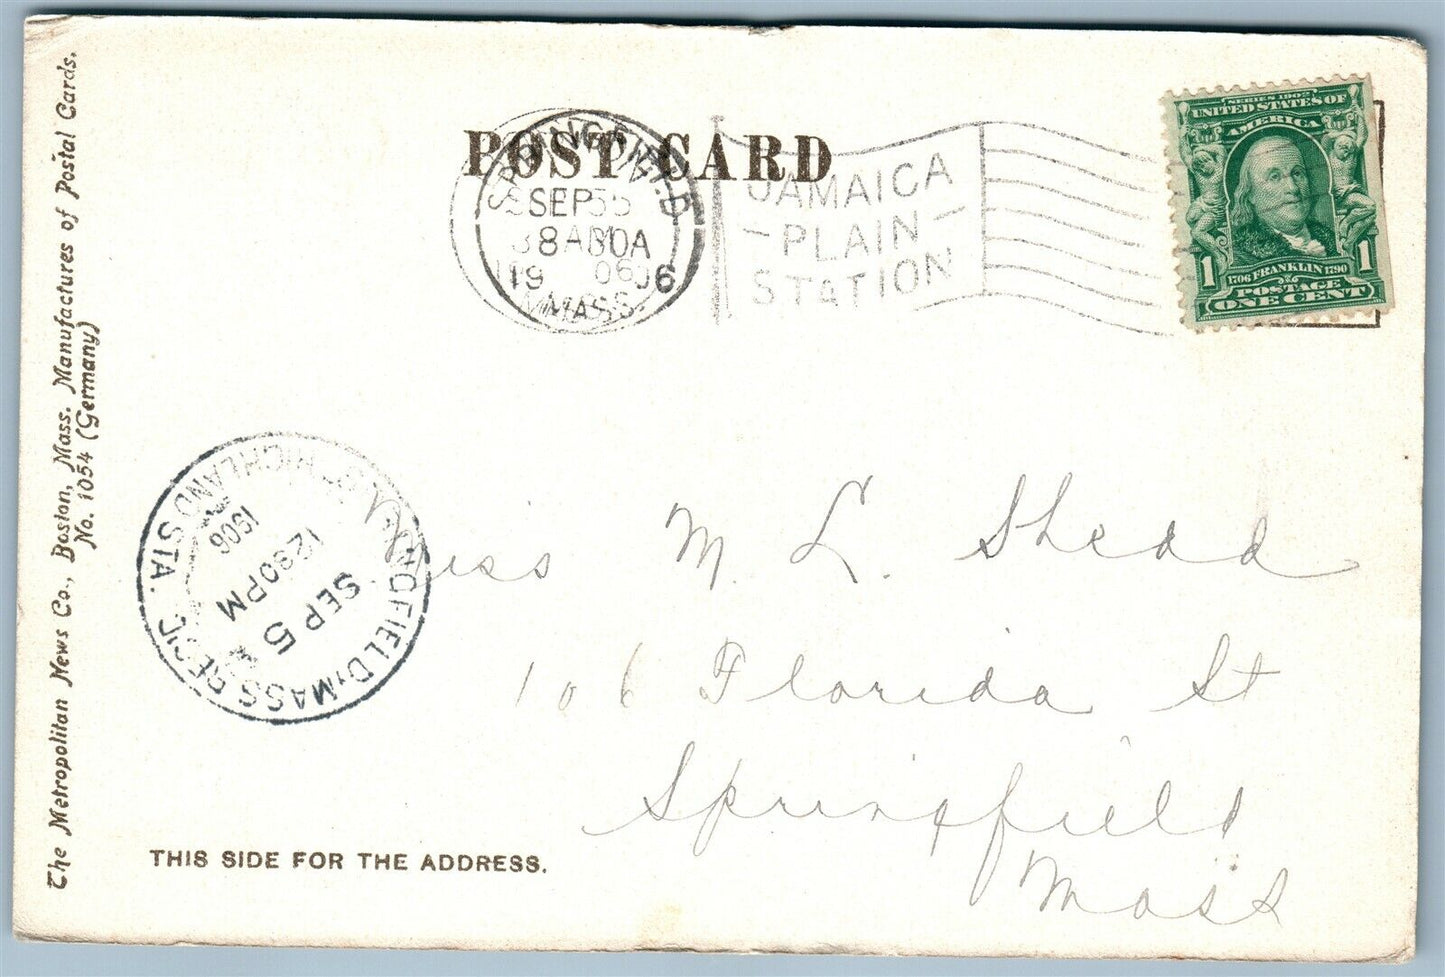 The Metropolitan News Co., Boston, Mass. Manufactures of Postal Cards.
No. 1054 (Germany)
POST CARD
SEP 5
8 30A
1906
MASS.
JAMAICA
- PLAIN -
STATION
SERIES 1902
UNITED STATES OF
AMERICA
1706 FRANKLIN 1790
1 1
POSTAGE
ONE CENT
HIGHLAND STA.
1906
1230PM
SEP 5
MASS. REC'D.
Miss M. L. Shedd
106 Florida St
Springfield
Mass
THIS SIDE FOR THE ADDRESS.